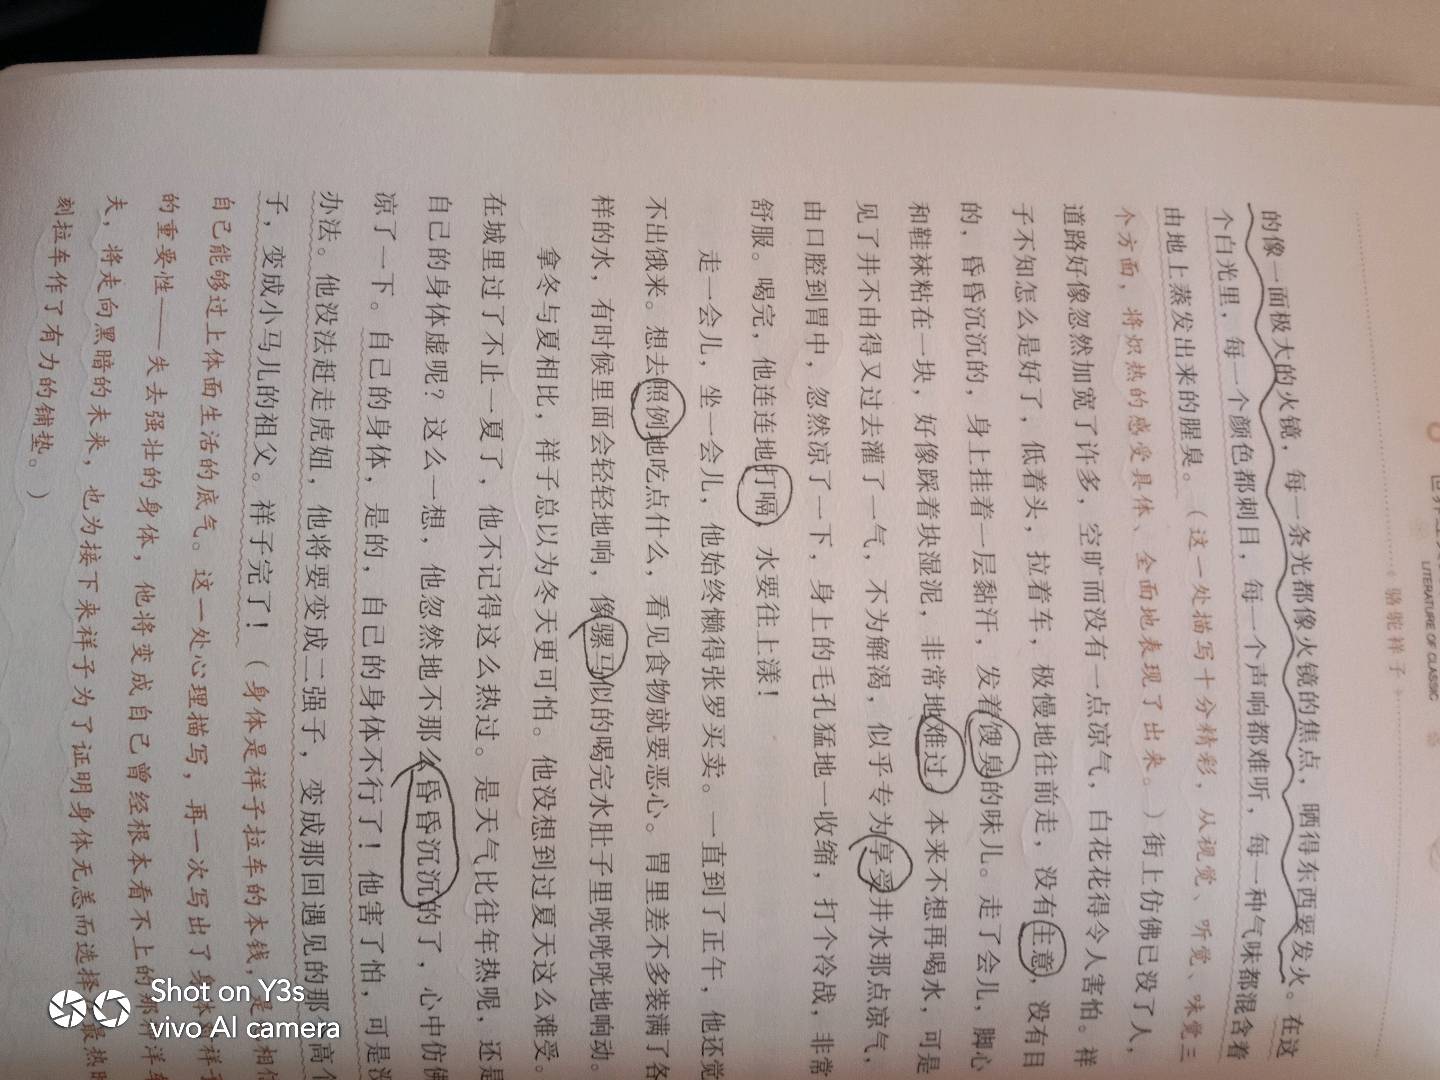 LITERATURE OF CLASSIC
骆驼祥子
的像一面极大的火镜，每一条光都像火镜的焦点，晒得东西要发火。在这
个白光里，每一个颜色都刺目，每一个声响都难听，每一种气味都混含着
由地上蒸发出来的腥臭。（这一处描写十分精彩，从视觉、听觉、味觉三
个方面，将炽热的感受具体、全面地表现了出来。）街上仿佛已没了人，
道路好像忽然加宽了许多，空旷而没有一点凉气，白花花得令人害怕。祥
子不知怎么是好了，低着头，拉着车，极慢地往前走，没有主意，没有目
的，昏昏沉沉的，身上挂着一层黏汗，发着馊臭的味儿。走了会儿，脚心
和鞋袜粘在一块，好像踩着块湿泥，非常地难过。本来不想再喝水，可是
见了井不由得又过去灌了一气，不为解渴，似乎专为享受井水那点凉气，
由口腔到胃中，忽然凉了一下，身上的毛孔猛地一收缩，打个冷战，非常
舒服。喝完，他连连地打嗝，水要往上漾！
走一会儿，坐一会儿，他始终懒得张罗买卖。一直到了正午，他还觉
不出饿来。想去照例地吃点什么，看见食物就要恶心。胃里差不多装满了各
样的水，有时候里面会轻轻地响，像骡马似的喝完水肚子里咣咣咣地响动。
拿冬与夏相比，祥子总以为冬天更可怕。他没想到过夏天这么难受。
在城里过了不止一夏了，他不记得这么热过。是天气比往年热呢，还是
自己的身体虚呢？这么一想，他忽然地不那么昏昏沉沉的了，心中仿佛
凉了一下。自己的身体，是的，自己的身体不行了！他害了怕，可是没
办法。他没法赶走虎妞，他将要变成二强子，变成那回遇见的那个高个
子，变成小马儿的祖父。祥子完了！（身体是祥子拉车的本钱，是他相信
自己能够过上体面生活的底气。这一处心理描写，再一次写出了身体对祥子
的重要性——失去强壮的身体，他将变成自己曾经根本看不上的那种洋车
夫，将走向黑暗的未来，也为接下来祥子为了证明身体无恙而选择最热时
刻拉车作了有力的铺垫。）
Shot on Y3s
vivo AI camera